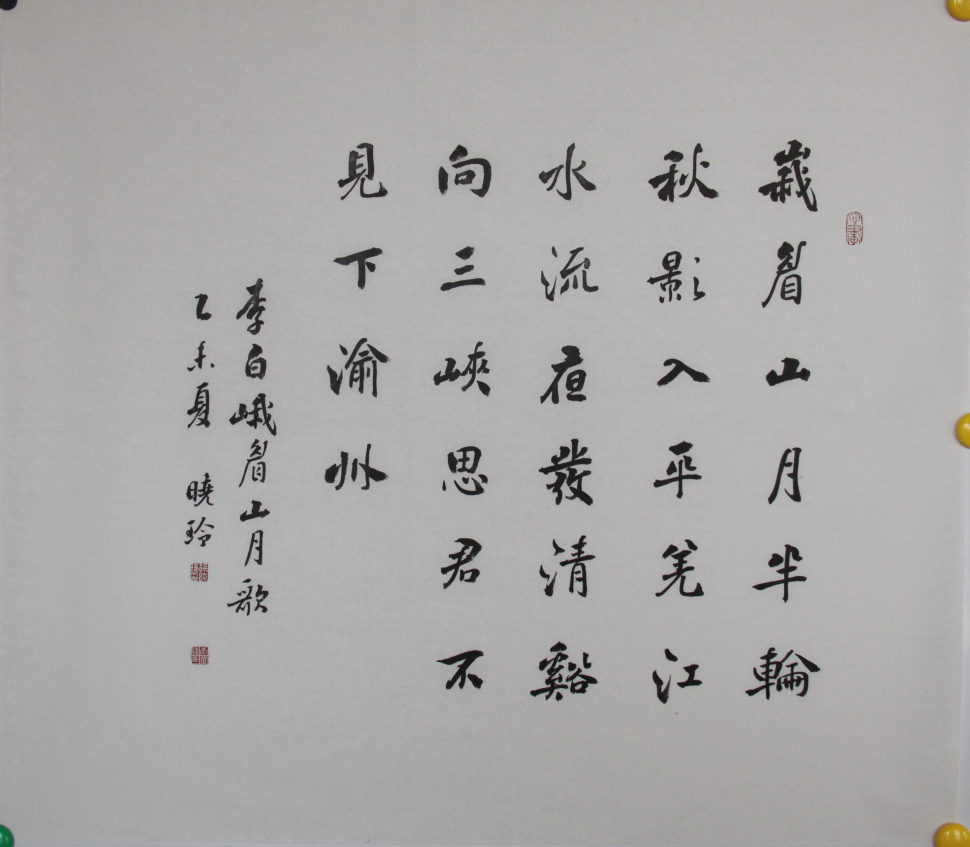 峩眉山月半輪
秋影入平羌江
水流夜發清谿
向三峽思君不
見下渝州
李白峨眉山月歌
乙未夏 曉玲